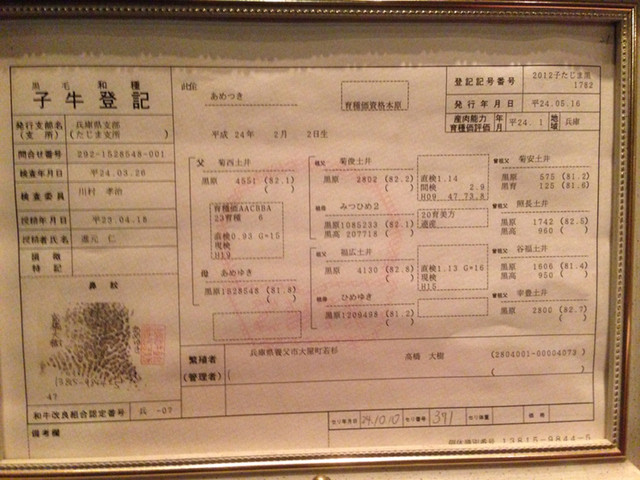 黒毛和種
子牛登記
発行支部名 兵庫県支部
(支所) (たじま支所)
問合せ番号 292-1528548-001
検査年月日 平24.03.26
検査委員 川村 孝治
授精年月日 平23.04.18
授精者氏名
損徴
特記
鼻紋
和牛改良組合認定番号 兵 -07
備考欄
あめつき
育種価資格本原
平成 24年 2月 2日生
登記記号番号 2012子たじま黒
1782
発行年月日 平24.05.16
産肉能力 年
育種価評価 月 平24. 1 地域 兵庫
父 菊西土井
黒原 4551 (82.1)
育種価AACBBA
23育種 6
直検0.93 G=15
現検
H19
母 あめゆき
黒原1528548 (81.8)
祖父 菊俊土井
黒原 2802 (82.2)
直検1.14
間検 2.9
H09 47 73.8
祖母 みつひめ2
黒原1085233 (82.1)
黒高 207718 ( )
20育美方
遺産
祖父 福広土井
黒原 4130 (82.8)
直検1.13 G=16
現検
H15
祖母 ひめゆき
黒原1206498 (81.2)
曾祖父 菊安土井
黒原 575 (81.2)
黒育 125 (81.6)
曾祖父 照長土井
黒原 1742 (82.5)
黒高 960 ( )
曾祖父 谷福土井
黒原 1606 (81.4)
黒高 950 ( )
曾祖父 幸豊土井
黒原 2800 (82.7)
繁殖者 兵庫県養父市大屋町若杉 高橋 大樹 (2804001-00004073 )
(管理者)
セリ年月日 24.10.10 セリ番号 371 セリ体重 価格
個体識別番号 13815-9844-5